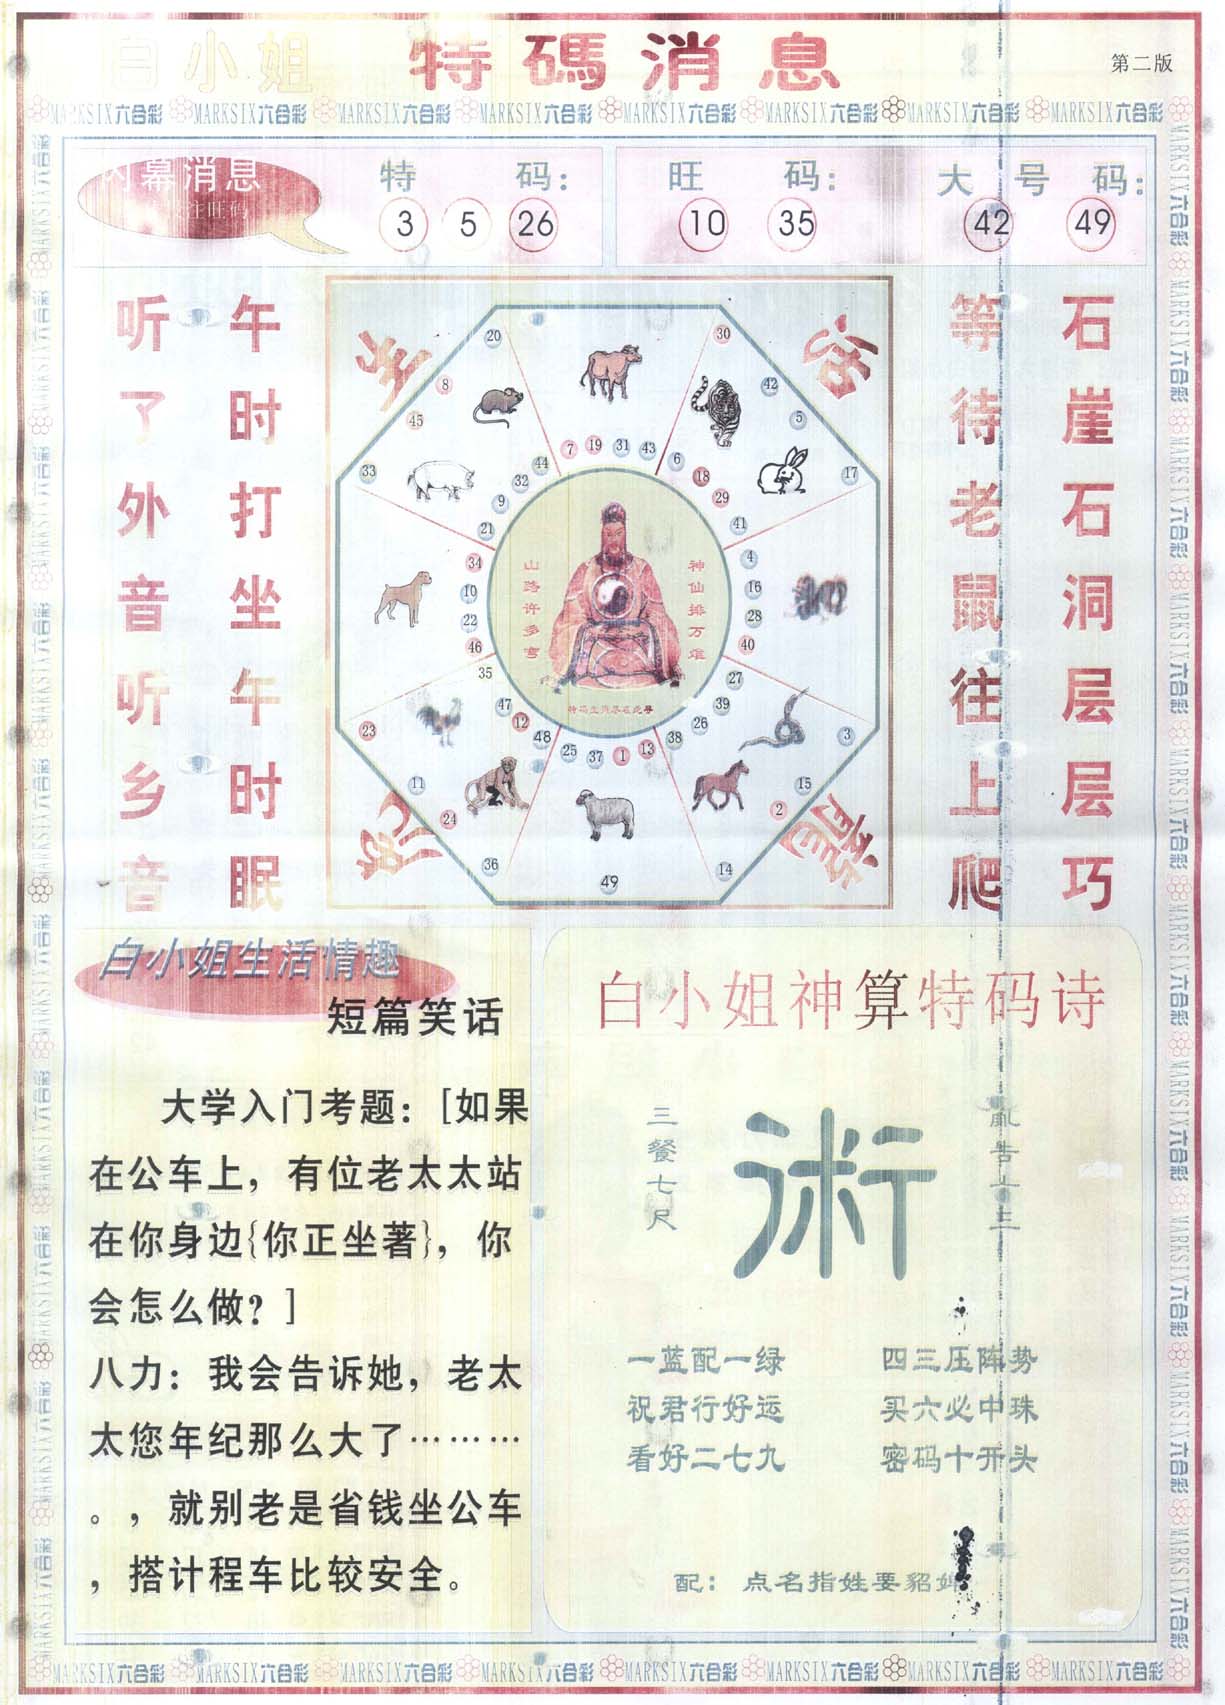 白小姐 特碼消息
第二版
MARKSIX六合彩 MARKSIX六合彩 MARKSIX六合彩 MARKSIX六合彩 MARKSIX六合彩 MARKSIX六合彩 MARKSIX六合彩 MARKSIX六合彩
内幕消息
注旺码
特 码：
3 5 26
旺 码：
10 35
大 号 码：
42 49
石崖石洞层层巧
等待老鼠往上爬
午时打坐午时眠
听了外音听乡音
20 30
8 42
45 5
33 17
7 19 31 43
44 6
32 18
9 29
21 41
34 4
10 16
22 28
46 40
35 27
47 39
12 26
48 38
25 37 1 13
23 3
11 15
24 2
36 14
49
神仙排万难
山路许多弯
特码生肖尽在此寻
龍
白小姐生活情趣
短篇笑话
大学入门考题：[如果
在公车上，有位老太太站
在你身边{你正坐著}，你
会怎么做？]
八力：我会告诉她，老太
太您年纪那么大了………
。，就别老是省钱坐公车
，搭计程车比较安全。
白小姐神算特码诗
三餐七尺
術
一蓝配一绿 四三压阵势
祝君行好运 买六必中珠
看好二七九 密码十开头
配：点名指姓要貂婵
MARKSIX六合彩 MARKSIX六合彩 MARKSIX六合彩 MARKSIX六合彩 MARKSIX六合彩 MARKSIX六合彩 MARKSIX六合彩 MARKSIX六合彩